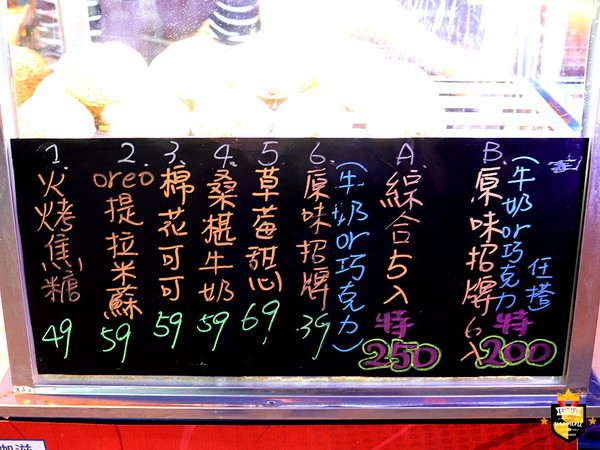 1. 火烤焦糖 49
2. oreo提拉米蘇 59
3. 棉花可可 59
4. 桑椹牛奶 59
5. 草莓甜心 69
6. 原味招牌 39
(牛奶or巧克力)
A. 綜合5入 特250
B. 原味招牌6入 特200
(牛奶or巧克力
任搭